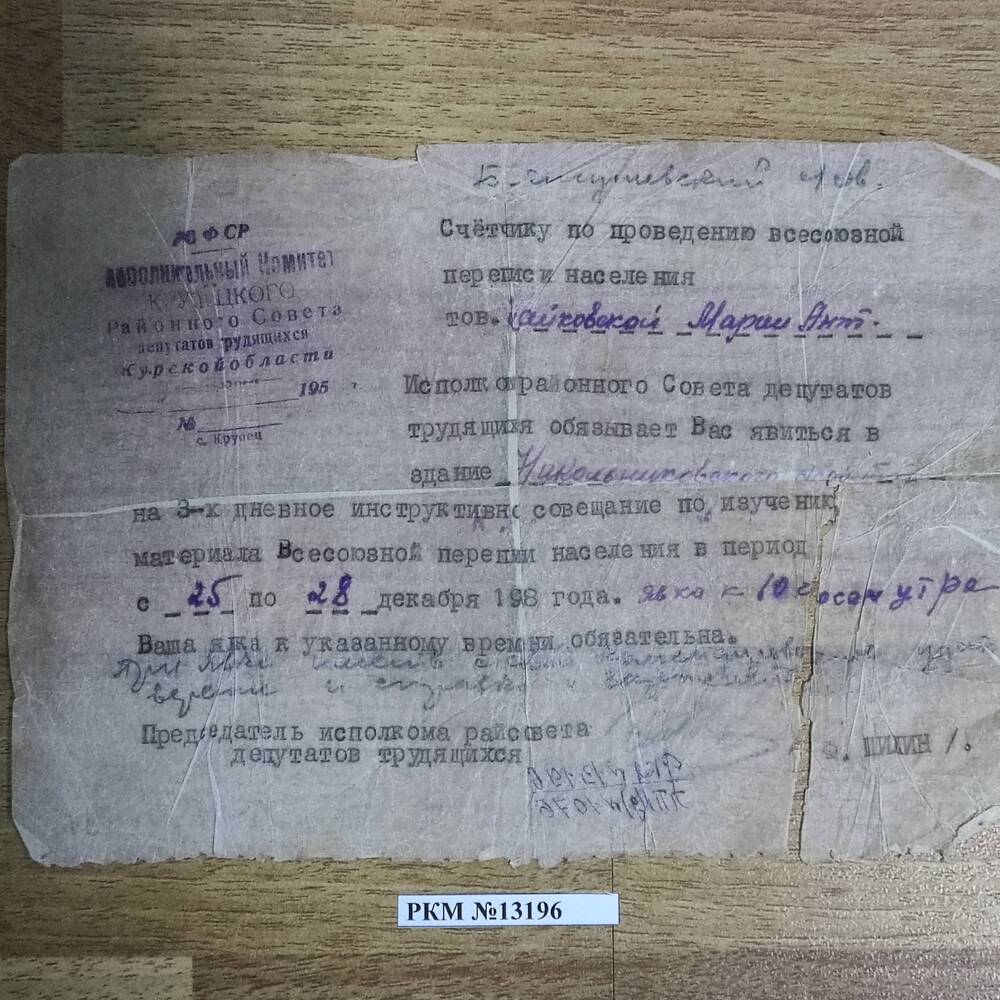 РСФСР
Исполнительный Комитет
КРУПЕЦКОГО
Районного Совета
депутатов трудящихся
Курской области
195
№
с. Крупец
Счётчику по проведению всесоюзной
переписи населения
тов. Марии Ант.
Исполком районного Совета депутатов
трудящихся обязывает Вас явиться в
здание
на 3-х дневное инструктивно совещание по изучению
материала Всесоюзной переписи населения в период
с 25 по 28 декабря 198 года. явка к 10 часам утра
Ваша явка к указанному времени обязательна.
При явке иметь с собой
и справку
Председатель исполкома райсовета
депутатов трудящихся
ШИХИН /.
РКМ №13196